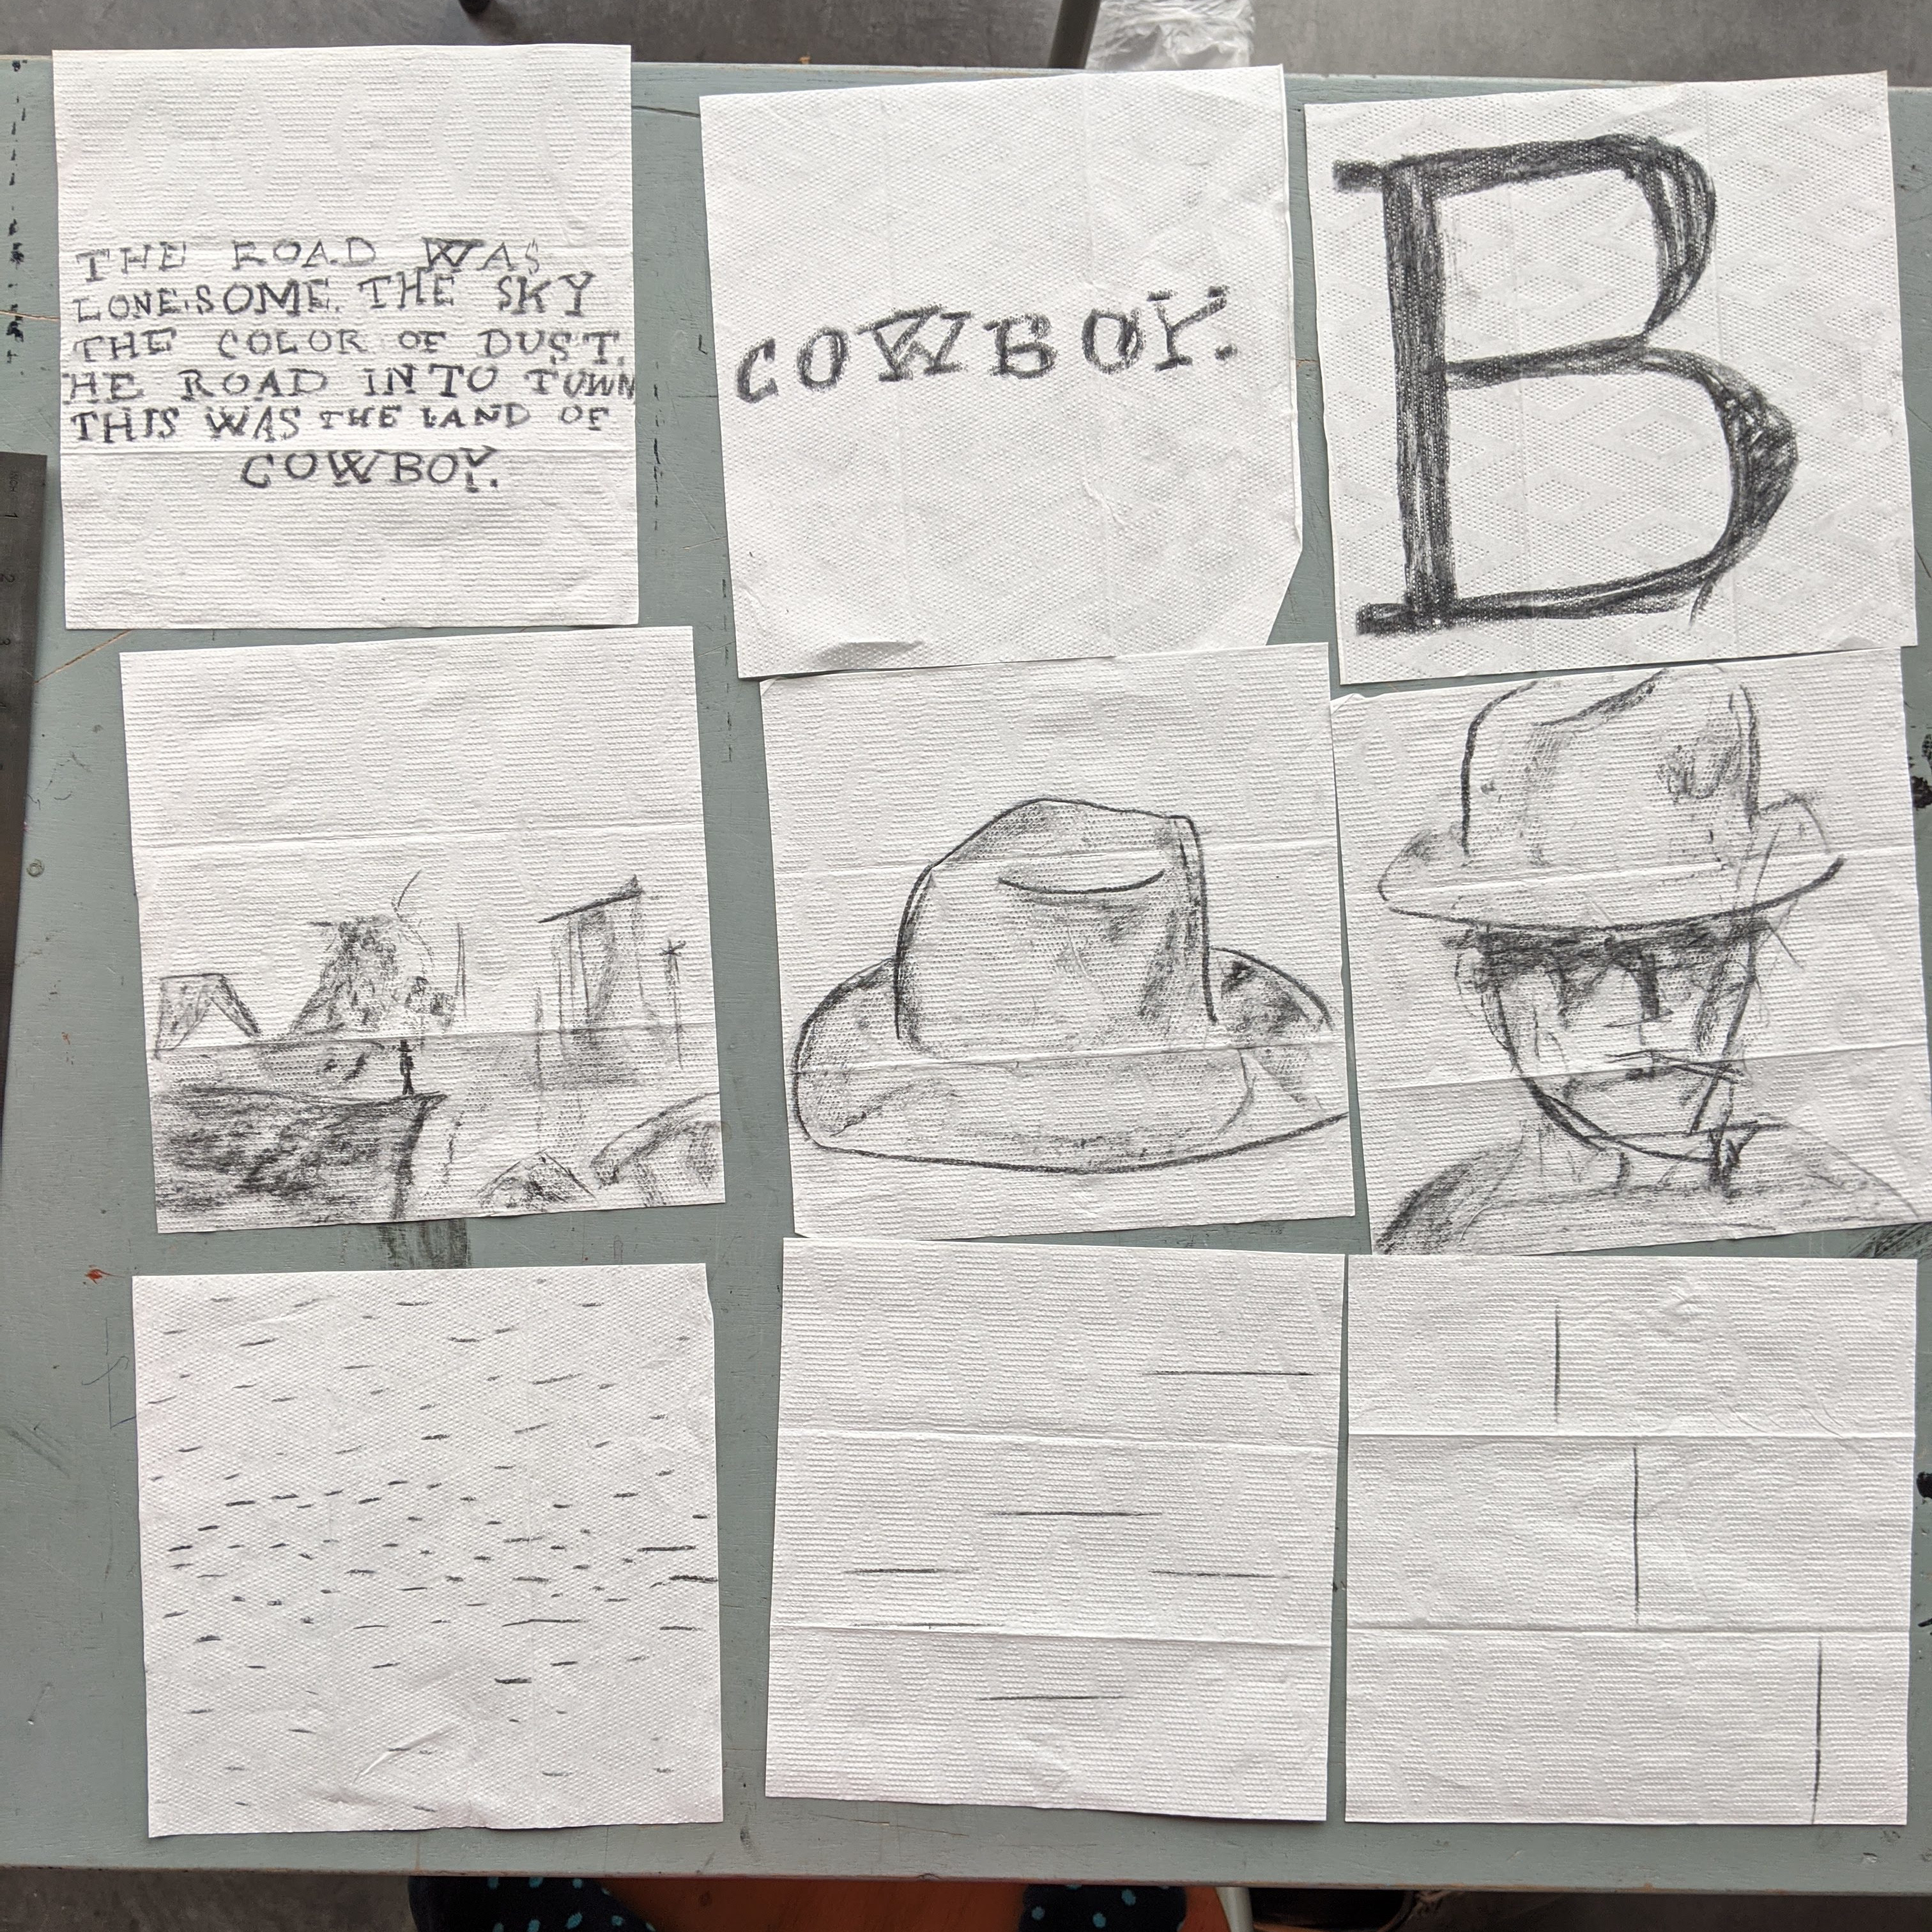 THE ROAD WAS
LONESOME. THE SKY
THE COLOR OF DUST.
HE ROAD INTO TOWN
THIS WAS THE LAND OF
COWBOY.
COWBOY.
B
1
2
3